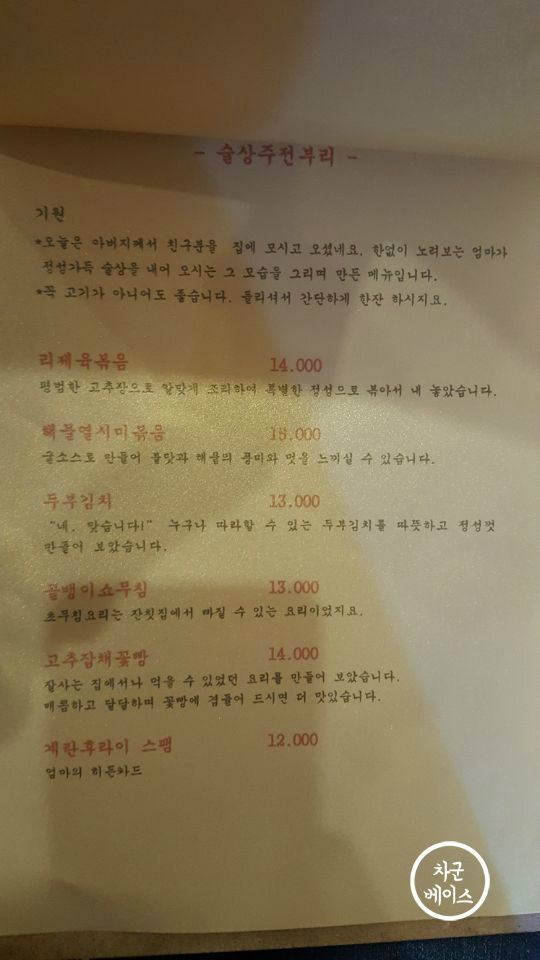 - 술상주전부리 -
기원
*오늘은 아버지께서 친구분을 집에 모시고 오셨네요. 한없이 노려보는 엄마가
정성가득 술상을 내어 오시는 그 모습을 그리며 만든 메뉴입니다.
*꼭 고기가 아니어도 좋습니다. 들리셔서 간단하게 한잔 하시지요.
리제육볶음 14.000
평범한 고추장으로 알맞게 조리하여 특별한 정성으로 볶아서 내 놓았습니다.
해물열시미볶음 15.000
굴소스로 만들어 불맛과 해물의 풍미와 멋을 느끼실 수 있습니다.
두부김치 13.000
"네, 맞습니다!" 누구나 따라할 수 있는 두부김치를 따뜻하고 정성껏
만들어 보았습니다.
골뱅이쇼무침 13.000
초무침요리는 잔칫집에서 빠질 수 없는 요리이었지요.
고추잡채꽃빵 14.000
잘사는 집에서나 먹을 수 있었던 요리를 만들어 보았습니다.
매콤하고 달달하며 꽃빵에 곁들어 드시면 더 맛있습니다.
계란후라이 스팸 12.000
엄마의 히든카드
차군
베이스